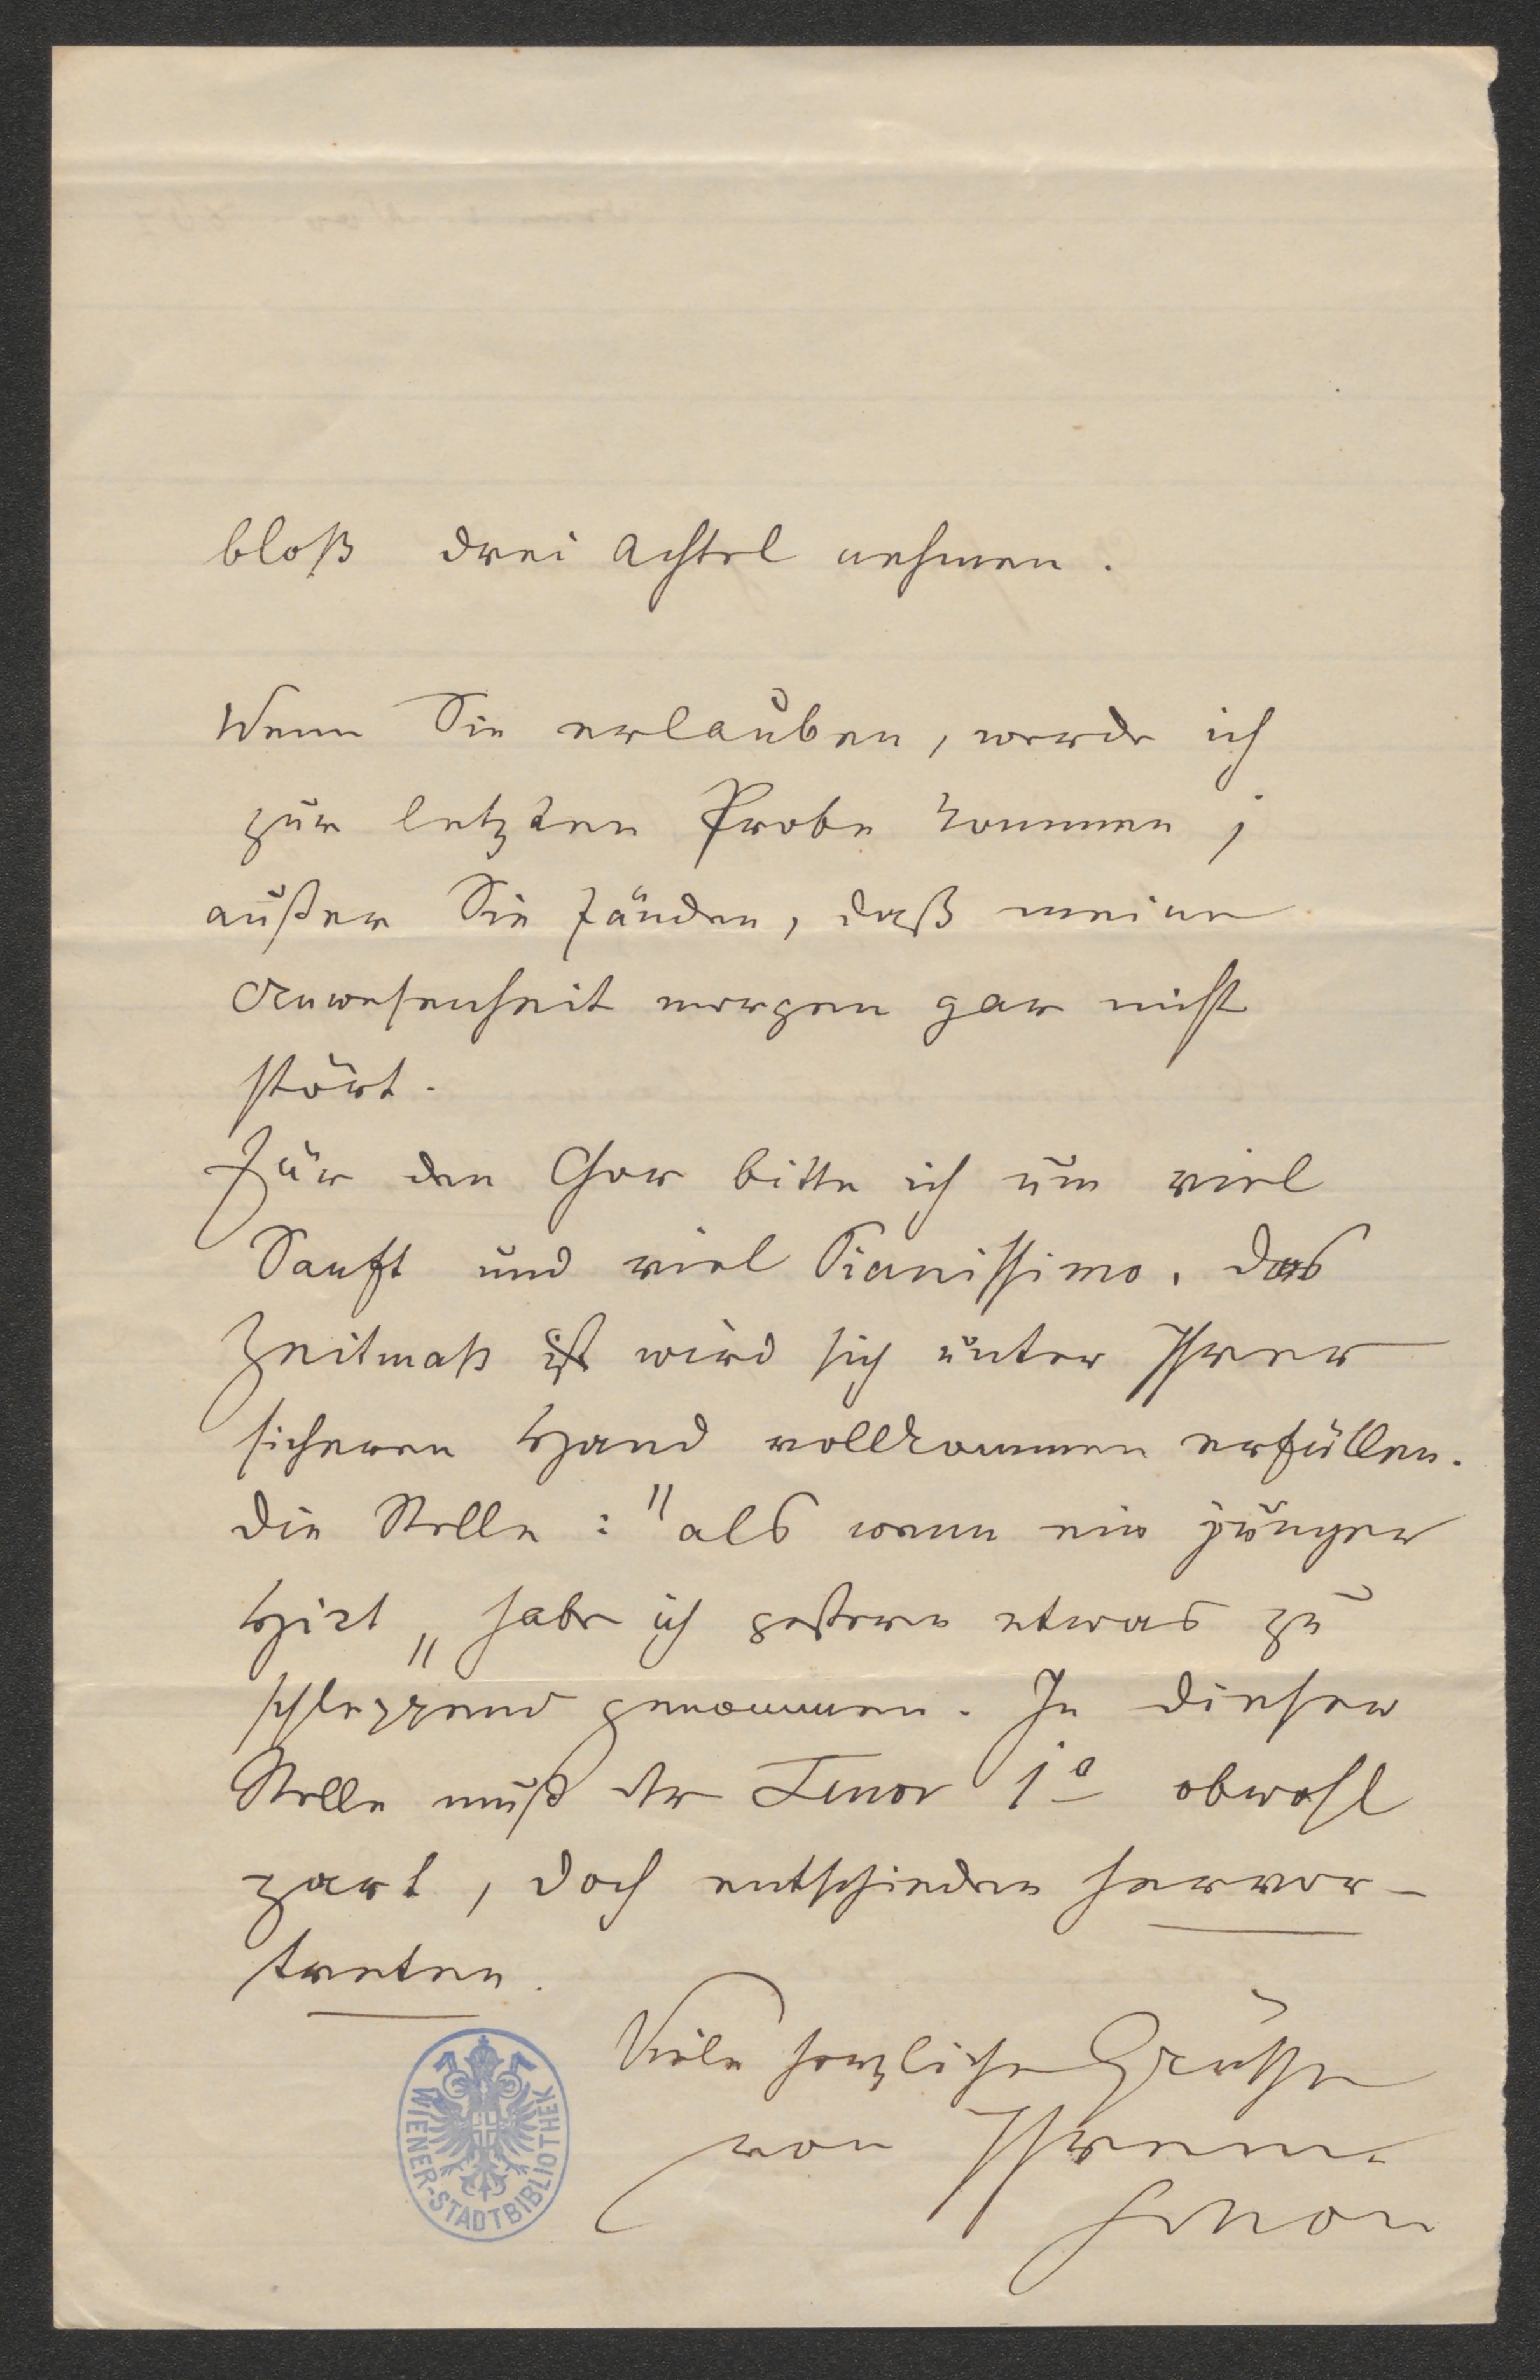 bloß drei Achtel nehmen.
Wenn Sie erlauben, werde ich
zur letzten Probe kommen;
außer Sie fänden, daß meine
Anwesenheit morgen gar nicht
stört.
Für den Chor bitte ich um viel
Sanft und viel Pianissimo. Das
Zeitmaß ist wird sich unter Ihrer
sicheren Hand vollkommen erfüllen.
Die Stelle: "als wenn ein junger
Hirt" habe ich gestern etwas zu
schleppend genommen. In dieser
Stelle muß der Tenor 1º obwohl
zart, doch entschieden hervor-
treten.
Viele herzliche Grüße
von Ihrem
WIENER-STADTBIBLIOTHEK